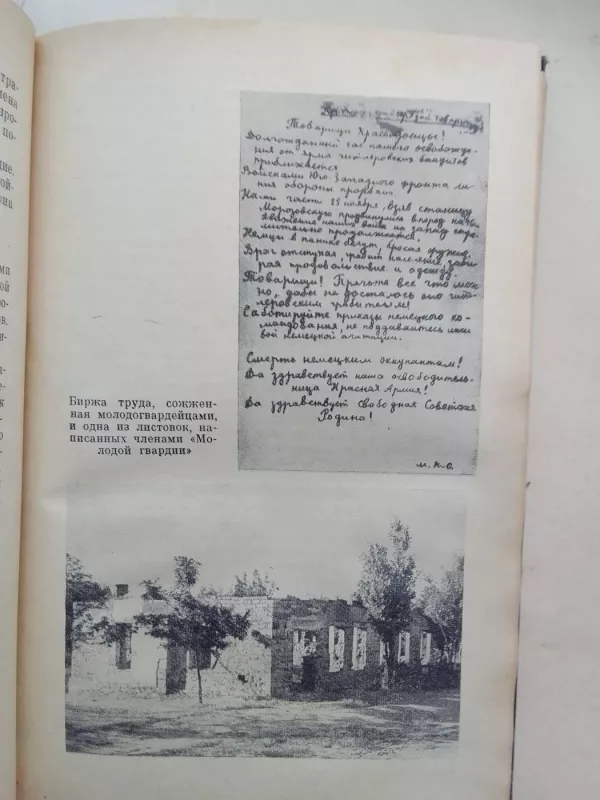 тра-
мена
про-
по-
ние,
той-
она
ми
а-
е-
к
Товарищи Краснодонцы!
Долгожданный час нашего освобожде-
ния от ярма гитлеровских бандитов
приближается
Войсками Юго Западного фронта ли-
ния обороны прорвана.
Наши части 25 ноября, взяв станицу
Морозовскую продвинулись вперед на
движение наших войск на запад стре-
мительно продолжается.
Немцы в панике бегут, бросая оружие.
Враг отступая, грабит население, заби-
рая продовольствие и одежду.
Товарищи! Прячьте все что мож-
но, дабы не досталось оно гит-
леровским грабителям!
Саботируйте приказы немецкого ко-
мандования, не поддавайтесь лжи-
вой немецкой агитации.
Смерть немецким оккупантам!
Да здравствует наша освободитель-
ница Красная Армия!
Да здравствует Свободная Советская
Родина!
Биржа труда, сожжен-
ная молодогвардейцами,
и одна из листовок, на-
писанных членами «Мо-
лодой гвардии»